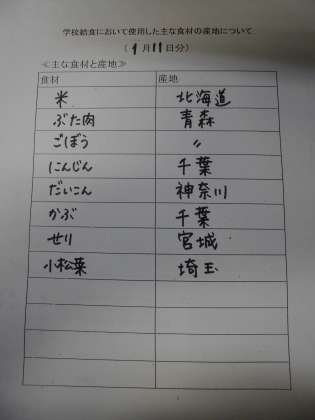 学校給食において使用した主な食材の産地について
（1月11日分）
≪主な食材と産地≫
食材 産地
米 北海道
ぶた肉 青森
ごぼう 〃
にんじん 千葉
だいこん 神奈川
かぶ 千葉
せり 宮城
小松菜 埼玉